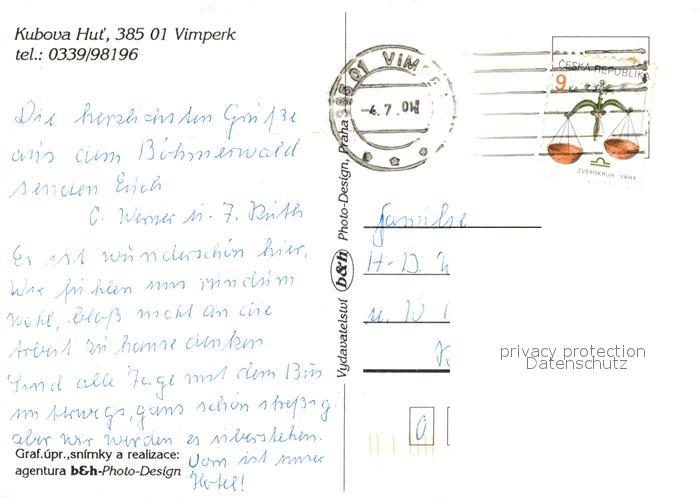 Kubova Huť, 385 01 Vimperk
tel.: 0339/98196
Die herzlichsten Grüße
aus dem Böhmerwald
senden Euch
O. Werner u. J. Ruth
Es ist wunderschön hier.
Wir fühlen uns rundum
wohl, bloß nicht an die
Arbeit zu hause denken.
Sind alle Tage mit dem Bus
unterwegs, ganz schön stressig
aber wir werden es überstehen.
Vorn ist unser
Hotel!
Graf.úpr.,snímky a realizace:
agentura b&h-Photo-Design
Vydavatelství b&h Photo-Design, Praha
385 01 VIMP
-4.7.01
ČESKÁ REPUBLIKA
9 Kč
ZVĚROKRUH VÁHY
Familie
H-D.
u.
0
privacy protection
Datenschutz